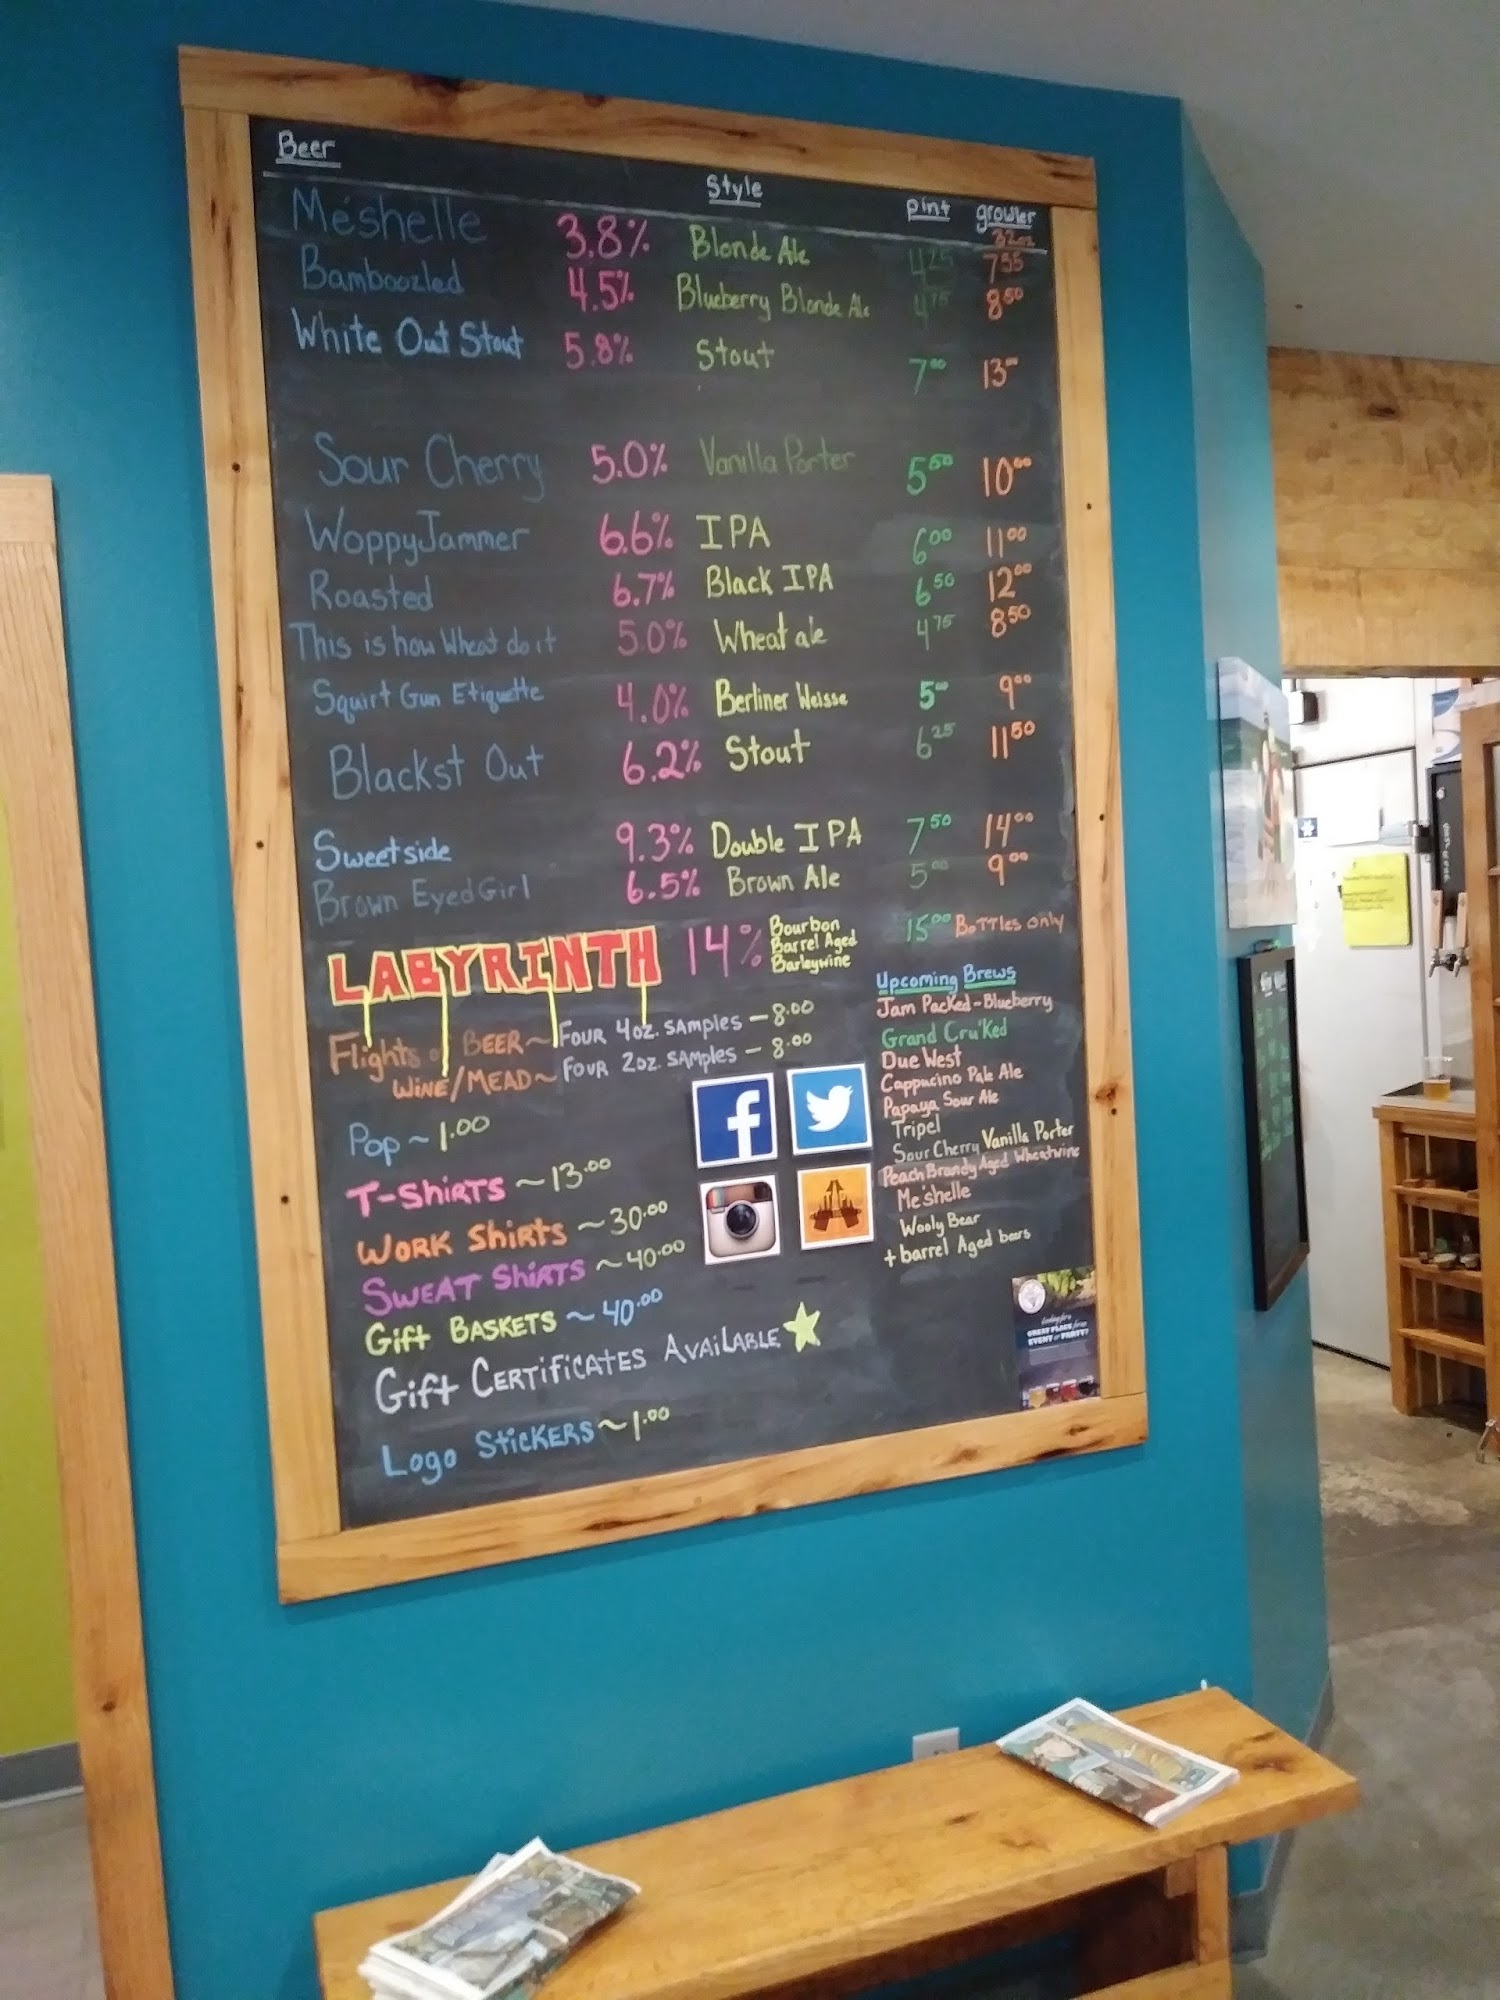 Beer Style pint growler
32oz
Me'shelle 3.8% Blonde Ale 4.25 7.55
Bamboozled 4.5% Blueberry Blonde Ale 4.75 8.50
White Out Stout 5.8% Stout 7.00 13-
Sour Cherry 5.0% Vanilla Porter 5.50 10.00
WoppyJammer 6.6% IPA 6.00 11.00
Roasted 6.7% Black IPA 6.50 12.00
This is how Wheat do it 5.0% Wheat ale 4.75 8.50
Squirt Gun Etiquette 4.0% Berliner Weisse 5.00 9.00
Blackst Out 6.2% Stout 6.25 11.50
Sweetside 9.3% Double IPA 7.50 14.00
Brown Eyed Girl 6.5% Brown Ale 5.00 9.00
LABYRINTH 14% Bourbon Barrel Aged Barleywine 15.00 Bottles only
Flights of BEER~ FOUR 4oz. SAMPLES - 8.00
WINE/MEAD~ FOUR 2oz. SAMPLES - 8.00
Pop ~ 1.00
T-SHIRTS ~ 13.00
WORK SHIRTS ~ 30.00
SWEAT SHIRTS ~ 40.00
Gift BASKETS ~ 40.00
Gift CERTIFICATES AVAILABLE
Logo STICKERS ~ 1.00
Upcoming Brews
Jam Packed - Blueberry
Grand Cru'Ked
Due West
Cappucino Pale Ale
Papaya Sour Ale
Tripel
Sour Cherry Vanilla Porter
Peach Brandy Aged Wheatwine
Me'shelle
Wooly Bear
+ barrel Aged beers
f
TAP
GREAT PLACE for an
EVENT or PARTY?